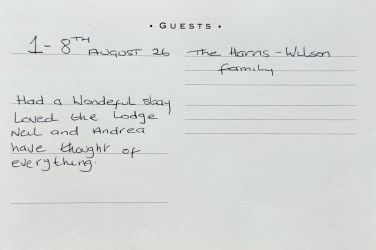 • GUESTS •
1 - 8TH AUGUST 26
The Harris - Wilson
family
Had a Wondeful stay
Loved the Lodge
Neil and Andrea
have thought of
everything.